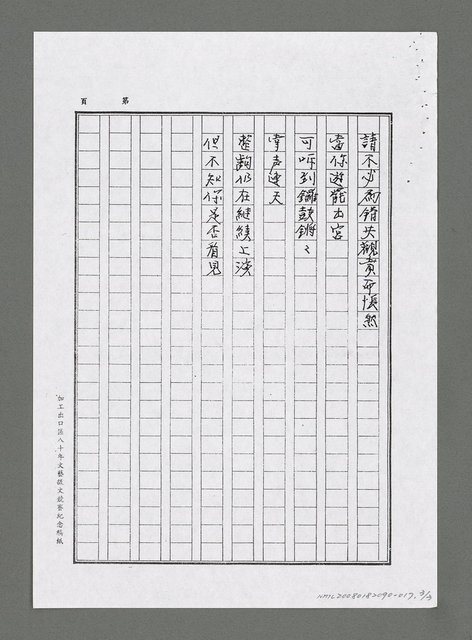 第　頁
請不必為錯失觀賞而悵然
當你遊罷出宮
可听到鑼鼓鏘々
掌声連天
整齣仍在繼續上演
但不知你是否看見
加工出口區八十年文藝徵文競賽紀念稿紙
NMTL20080182090-017. 3/3